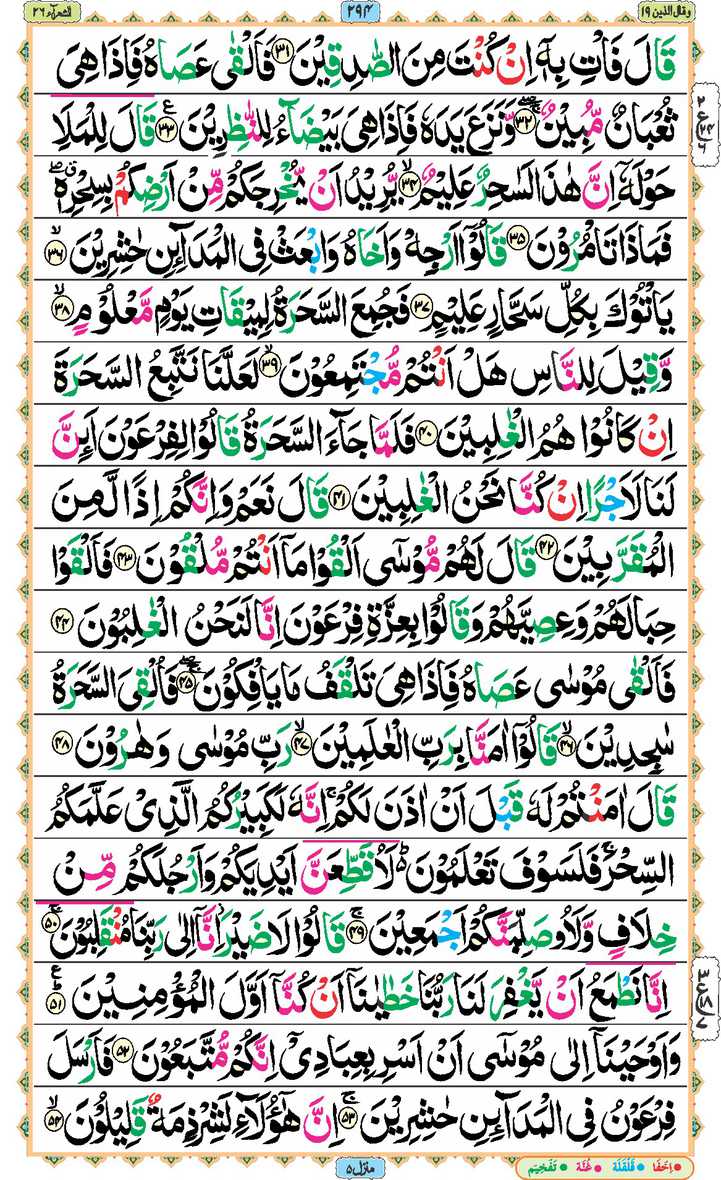 وقال الذين ١٩ ٢٩٤ الشعرآء ٢٦
قَالَ فَاْتِ بِهٖۤ اِنْ كُنْتَ مِنَ الصّٰدِقِيْنَ ﴿۳۱﴾ فَاَلْقٰى عَصَاهُ فَاِذَا هِىَ
ثُعْبَانٌ مُّبِيْنٌ ﴿۳۲﴾ وَّنَزَعَ يَدَهٗ فَاِذَا هِىَ بَيْضَآءُ لِلنّٰظِرِيْنَ ﴿۳۳﴾ قَالَ لِلْمَلَاِ
حَوْلَهٗۤ اِنَّ هٰذَا لَسٰحِرٌ عَلِيْمٌ ﴿۳۴﴾ يُّرِيْدُ اَنْ يُّخْرِجَكُمْ مِّنْ اَرْضِكُمْ بِسِحْرِهٖ
فَمَاذَا تَاْمُرُوْنَ ﴿۳۵﴾ قَالُوْۤا اَرْجِهْ وَاَخَاهُ وَابْعَثْ فِى الْمَدَآئِنِ حٰشِرِيْنَ ﴿۳۶﴾
يَاْتُوْكَ بِكُلِّ سَحَّارٍ عَلِيْمٍ ﴿۳۷﴾ فَجُمِعَ السَّحَرَةُ لِمِيْقَاتِ يَوْمٍ مَّعْلُوْمٍ ﴿۳۸﴾
وَّقِيْلَ لِلنَّاسِ هَلْ اَنْتُمْ مُّجْتَمِعُوْنَ ﴿۳۹﴾ لَعَلَّنَا نَتَّبِعُ السَّحَرَةَ
اِنْ كَانُوْا هُمُ الْغٰلِبِيْنَ ﴿۴۰﴾ فَلَمَّا جَآءَ السَّحَرَةُ قَالُوْا لِفِرْعَوْنَ اَئِنَّ
لَنَا لَاَجْرًا اِنْ كُنَّا نَحْنُ الْغٰلِبِيْنَ ﴿۴۱﴾ قَالَ نَعَمْ وَاِنَّكُمْ اِذًا لَّمِنَ
الْمُقَرَّبِيْنَ ﴿۴۲﴾ قَالَ لَهُمْ مُّوْسٰۤى اَلْقُوْا مَاۤ اَنْتُمْ مُّلْقُوْنَ ﴿۴۳﴾ فَاَلْقَوْا
حِبَالَهُمْ وَعِصِيَّهُمْ وَقَالُوْا بِعِزَّةِ فِرْعَوْنَ اِنَّا لَنَحْنُ الْغٰلِبُوْنَ ﴿۴۴﴾
فَاَلْقٰى مُوْسٰى عَصَاهُ فَاِذَا هِىَ تَلْقَفُ مَا يَاْفِكُوْنَ ﴿۴۵﴾ فَاُلْقِىَ السَّحَرَةُ
سٰجِدِيْنَ ﴿۴۶﴾ قَالُوْۤا اٰمَنَّا بِرَبِّ الْعٰلَمِيْنَ ﴿۴۷﴾ رَبِّ مُوْسٰى وَهٰرُوْنَ ﴿۴۸﴾
قَالَ اٰمَنْتُمْ لَهٗ قَبْلَ اَنْ اٰذَنَ لَكُمْ ۚ اِنَّهٗ لَكَبِيْرُكُمُ الَّذِىْ عَلَّمَكُمُ
السِّحْرَ ۚ فَلَسَوْفَ تَعْلَمُوْنَ ؕ لَاُقَطِّعَنَّ اَيْدِيَكُمْ وَاَرْجُلَكُمْ مِّنْ
خِلَافٍ وَّلَاُوصَلِّبَنَّكُمْ اَجْمَعِيْنَ ﴿۴۹﴾ قَالُوْا لَا ضَيْرَ ؗ اِنَّاۤ اِلٰى رَبِّنَا مُنْقَلِبُوْنَ ﴿۵۰﴾
اِنَّا نَطْمَعُ اَنْ يَّغْفِرَ لَنَا رَبُّنَا خَطٰيٰنَاۤ اَنْ كُنَّاۤ اَوَّلَ الْمُؤْمِنِيْنَ ﴿۵۱﴾
وَاَوْحَيْنَاۤ اِلٰى مُوْسٰٓى اَنْ اَسْرِ بِعِبَادِىْۤ اِنَّكُمْ مُّتَّبَعُوْنَ ﴿۵۲﴾ فَاَرْسَلَ
فِرْعَوْنُ فِى الْمَدَآئِنِ حٰشِرِيْنَ ﴿۵۳﴾ اِنَّ هٰۤؤُلَآءِ لَشِرْذِمَةٌ قَلِيْلُوْنَ ﴿۵۴﴾
منزل ۵
اِخْفَا • قَلْقَلَة • غُنَّه • تَفْخِيْم